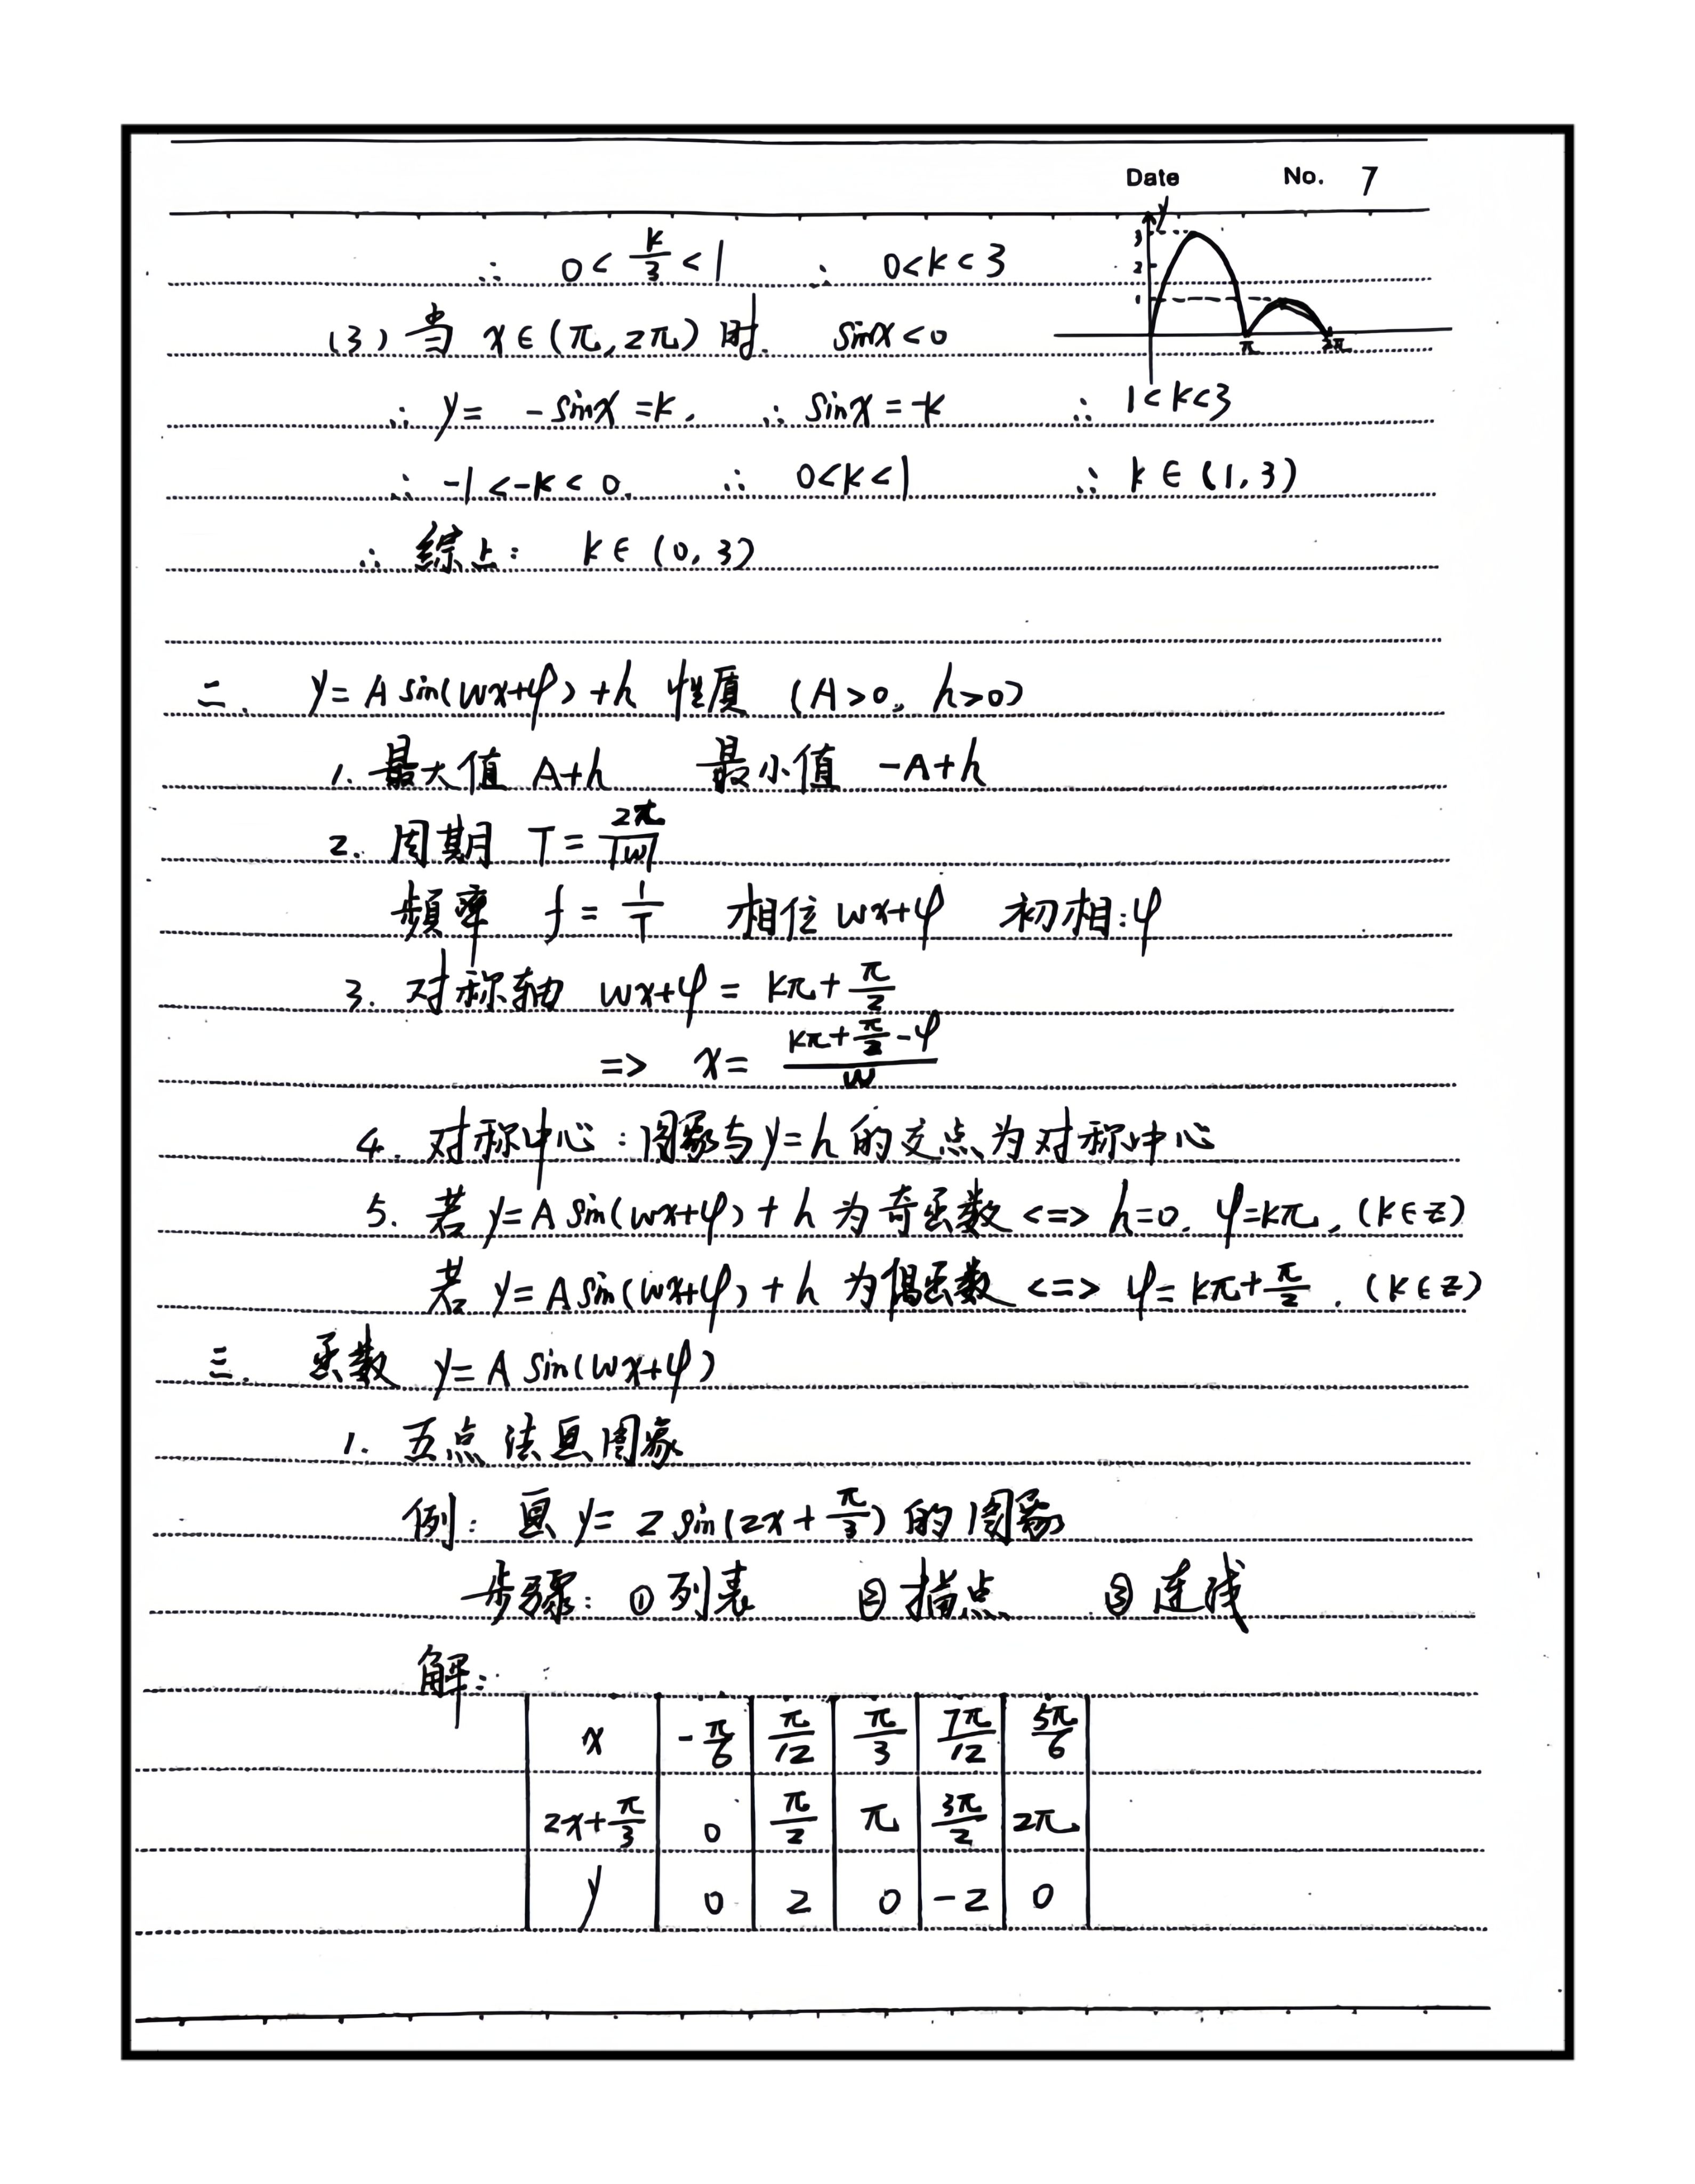 Date No. 7
y
3
2
1
π 2π
∴ 0 < k/3 < 1 ∴ 0<k<3
(3) 当 x∈(π,2π) 时. sinx<0
∴ y= -sinx =k. ∴ sinx = -k ∴ 1<k<3
∴ -1<-k<0. ∴ 0<k<1 ∴ k∈(1,3)
∴ 綜上: k∈(0,3)
二. y=A sin(wx+φ)+h 性质 (A>0, h>0)
1. 最大值 A+h 最小值 -A+h
2. 周期 T= 2π/|w|
頻率 f = 1/T 相位 wx+φ 初相:φ
3. 对称轴 wx+φ = kπ+ π/2
=> x= (kπ+ π/2 -φ)/w
4. 对称中心:图象与y=h的交点为对称中心
5. 若 y=A sin(wx+φ)+h 为奇函数 <=> h=0. φ=kπ, (k∈z)
若 y=A sin(wx+φ)+h 为偶函数 <=> φ= kπ+ π/2 . (k∈z)
三. 函数 y=A sin(wx+φ)
1. 五点法画图象
例: 画 y= 2 sin(2x+ π/3) 的图象
步骤: ① 列表 ② 描点 ③ 连线
解:
x -π/6 π/12 π/3 7π/12 5π/6
2x+π/3 0 π/2 π 3π/2 2π
y 0 2 0 -2 0